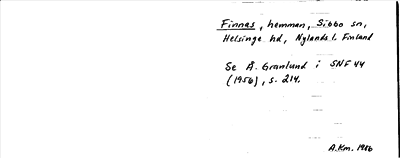 Finnas, hemman, Sibbo sn,
Helsinge hd, Nylands l. Finland
Se Å. Granlund i SNF 44
(1956), s. 214.
A.Km. 1986